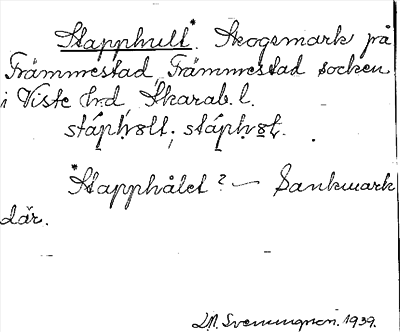 Stapphult*. Skogsmark på
Främmestad, Främmestad socken
i Viste hd, Skarab. l.
stáphu̯lt; stáphu̯t.
*Stapphålet? — Sankmark
där.
1939.